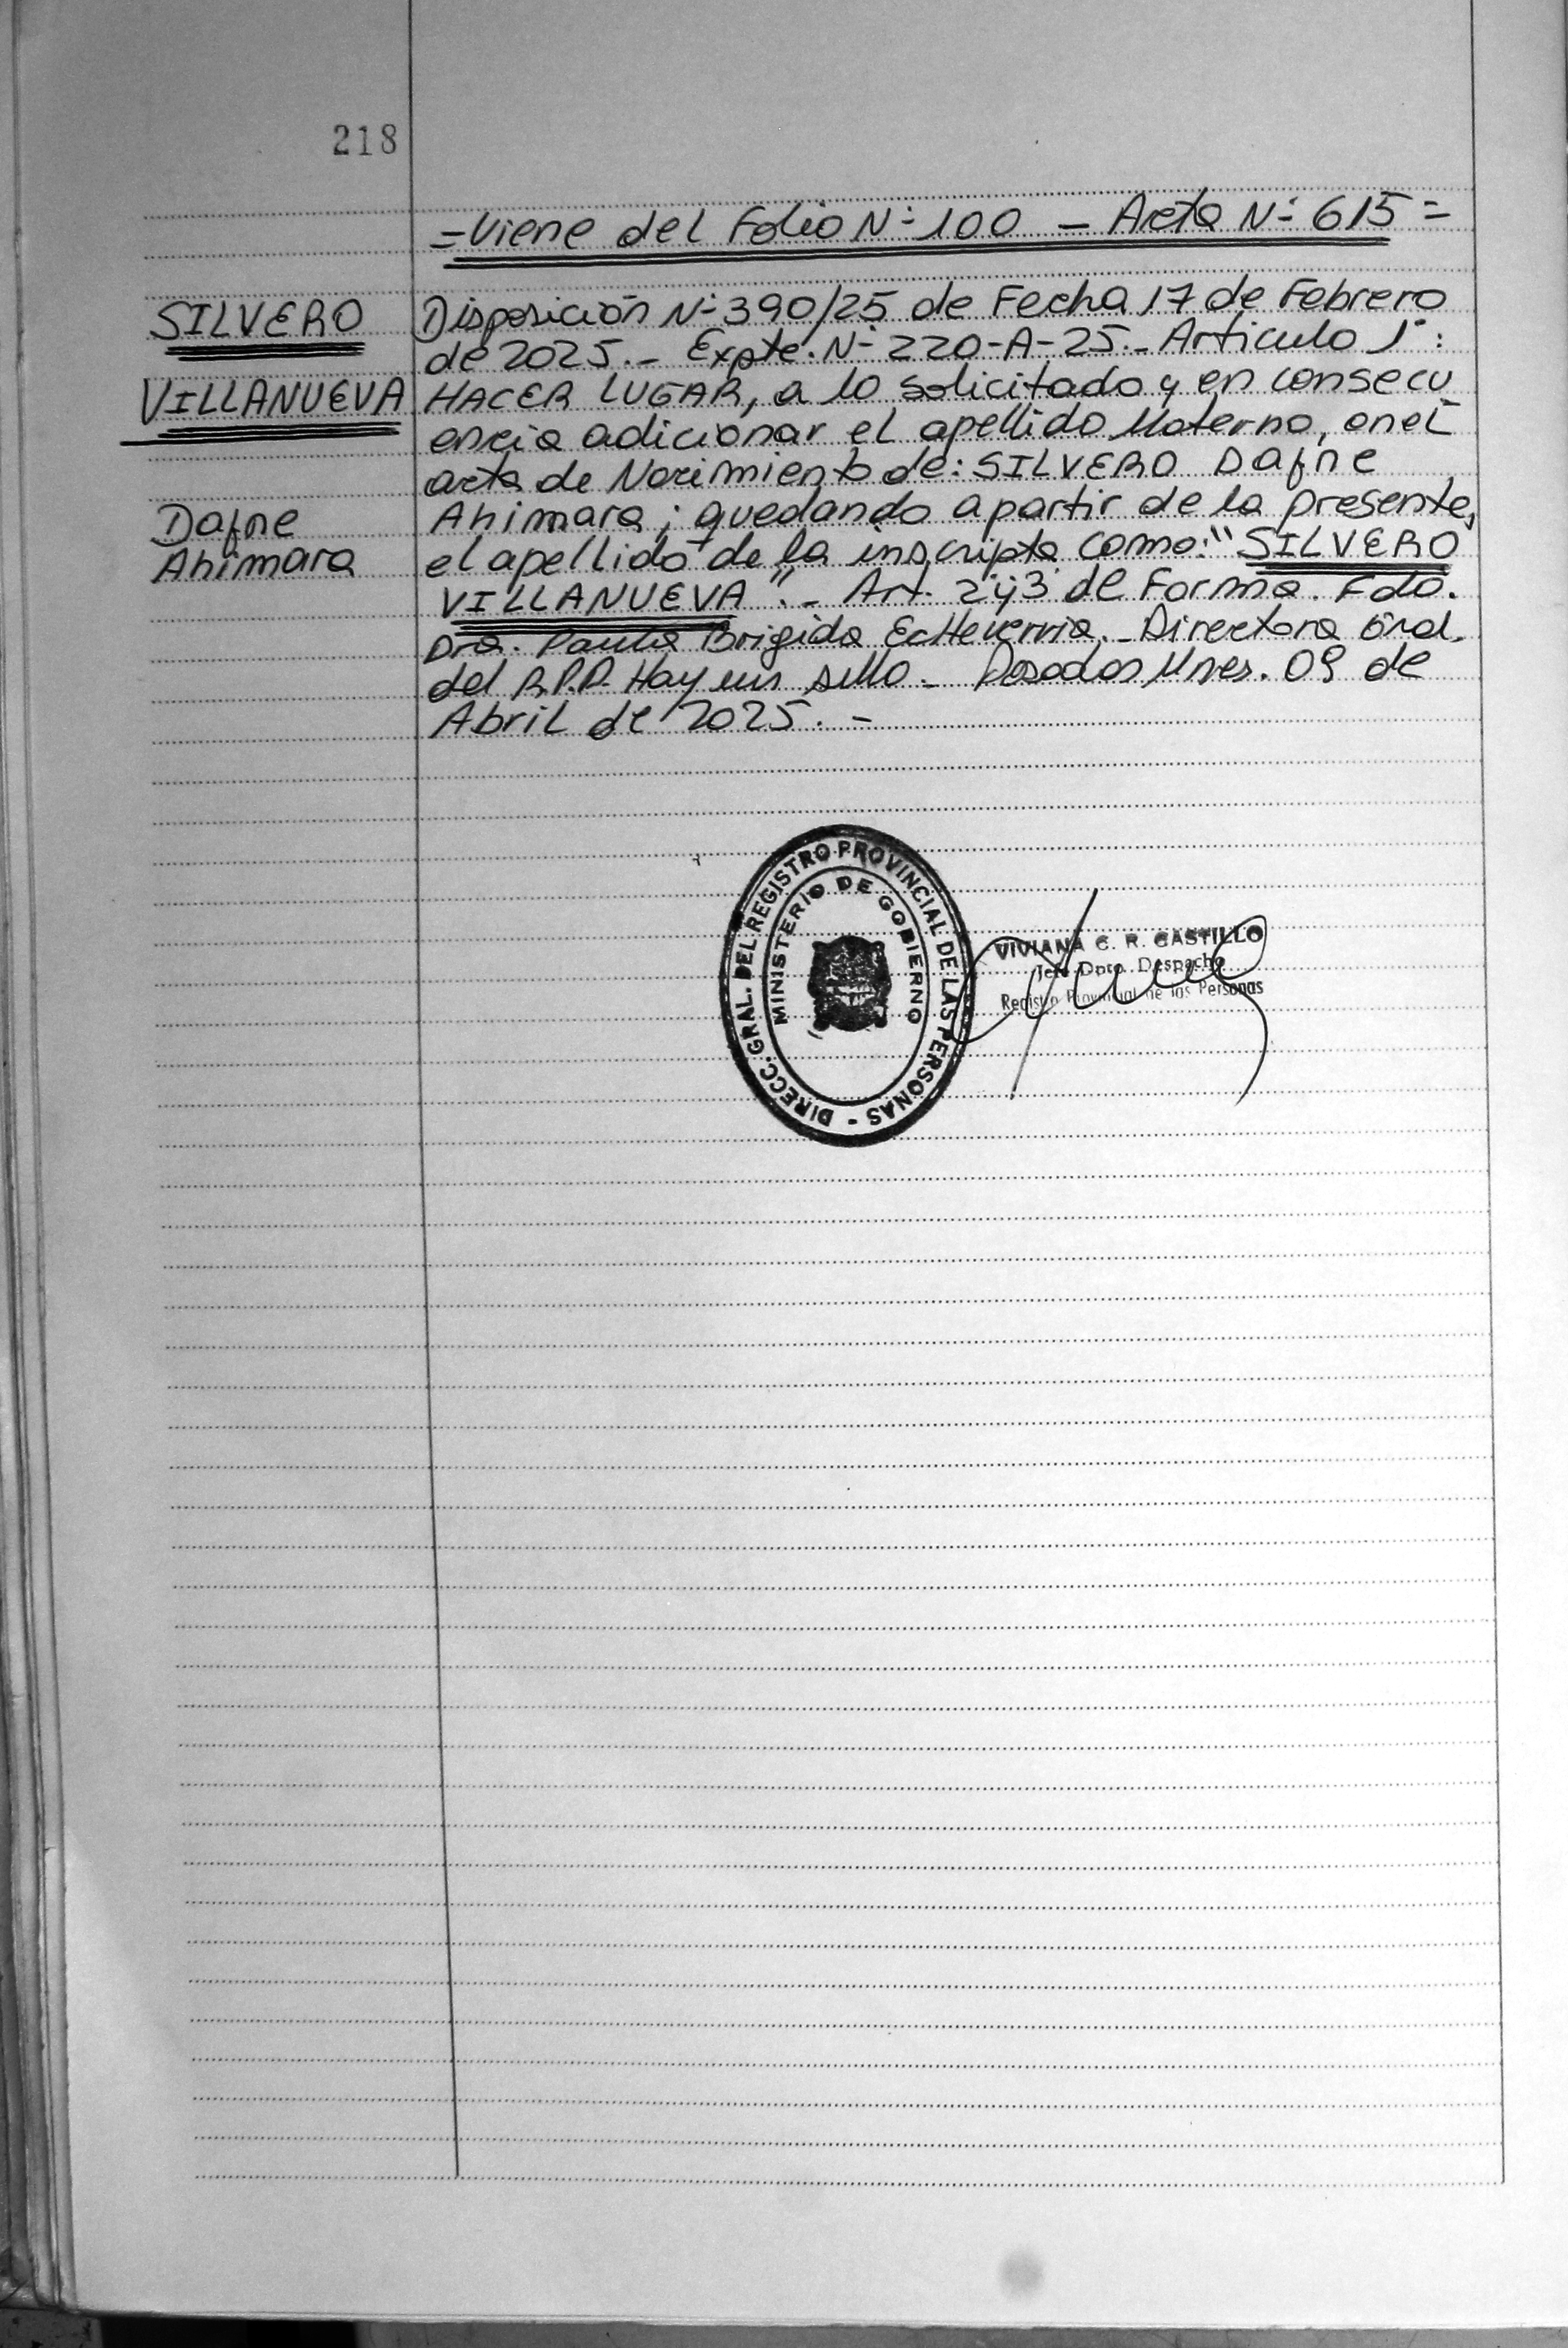 218
=Viene del Folio N° 100 - Acta N° 615=
SILVERO
VILLANUEVA
Dafne
Ahimara
Disposición N° 390/25 de Fecha 17 de Febrero
de 2025.- Expte. N° 220-A-25.- Articulo 1°:
HACER LUGAR, a lo solicitado y en consecu
encia adicionar el apellido Materno, en el
acta de Nacimiento de: SILVERO Dafne
Ahimara; quedando a partir de la presente,
el apellido de la inscripta como: "SILVERO
VILLANUEVA".- Art. 2° y 3° de Forma. Fdo.
Dra. Paula Brigida Echeverria.- Directora Gral.
del R.P.P. Hay un sello.- Posadas Mnes. 09 de
Abril de 2025.-
DIRECC. GRAL. DEL REGISTRO PROVINCIAL DE LAS PERSONAS -
MINISTERIO DE GOBIERNO
VIVIANA C. R. CASTILLO
Jefe Dpto. Despacho
Registro Provincial de las Personas